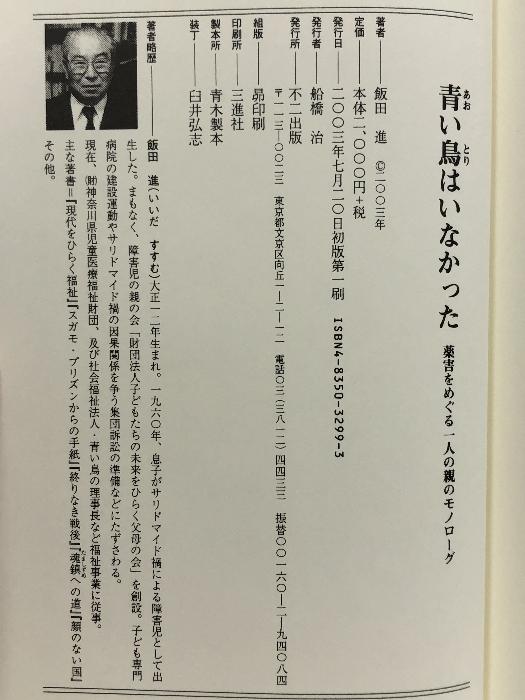 青い鳥はいなかった 薬害をめぐる一人の親のモノローグ
あお
とり
著者 飯田 進 ©二〇〇三年
定価 本体二、〇〇〇円+税
発行日 二〇〇三年七月二〇日初版第一刷 ISBN4-8350-3299-3
発行者 船橋 治
発行所 不二出版
〒一一三―〇〇二三 東京都文京区向丘一―二―一二 電話〇三(三八一二)四四三三 振替〇〇一六〇―二―九四〇八四
組版 昴印刷
印刷所 三進社
製本所 青木製本
装丁 臼井弘志
著者略歴 飯田 進(いいだ すすむ)大正一二年生まれ。一九六〇年、息子がサリドマイド禍による障害児として出
生した。まもなく、障害児の親の会「財団法人子どもたちの未来をひらく父母の会」を創設。子ども専門
病院の建設運動やサリドマイド禍の因果関係を争う集団訴訟の準備などにたずさわる。
現在、㈶神奈川県児童医療福祉財団、及び社会福祉法人・青い鳥の理事長など福祉事業に従事。
主な著書=『現代をひらく福祉』『スガモ・プリズンからの手紙』『終りなき戦後』『魂鎮への道』『顔のない国』
たましずめ
その他。